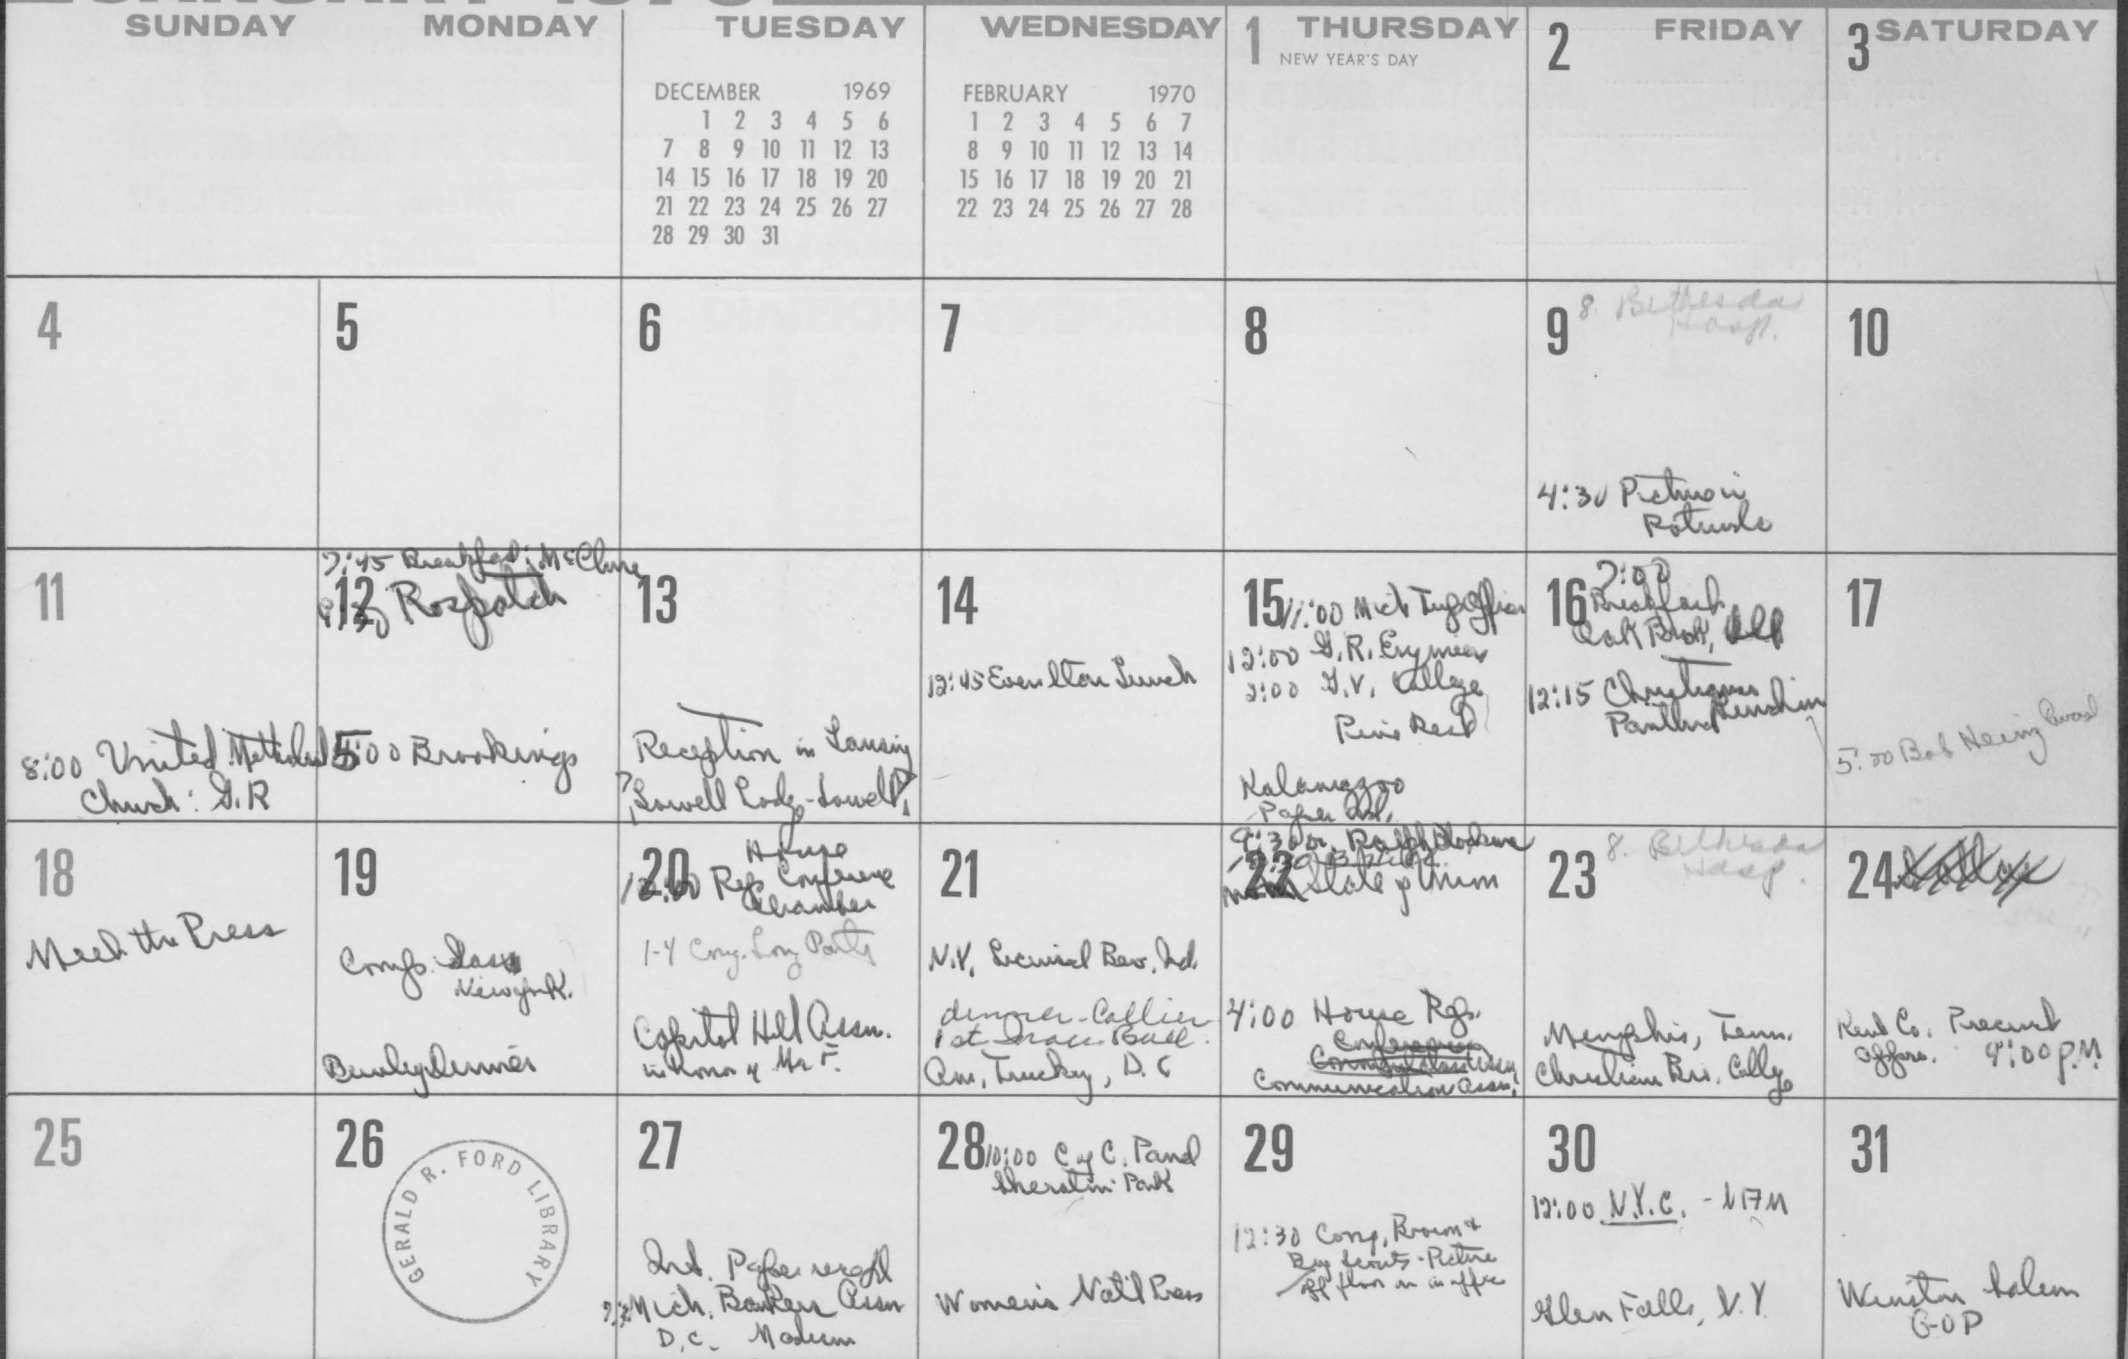 SUNDAY MONDAY TUESDAY WEDNESDAY THURSDAY FRIDAY SATURDAY
DECEMBER 1969
1 2 3 4 5 6
7 8 9 10 11 12 13
14 15 16 17 18 19 20
21 22 23 24 25 26 27
28 29 30 31
FEBRUARY 1970
1 2 3 4 5 6 7
8 9 10 11 12 13 14
15 16 17 18 19 20 21
22 23 24 25 26 27 28
1
NEW YEAR'S DAY
2
3
4
5
6
7
8
9
8. Bethesda
Hosp.
4:30 Picture in
Rotunda
10
11
8:00 United Methodist
Church: G.R
12
7:45 Breakfast: McClure
9:30 Rospatch
5:00 Brookings
13
Reception in Lansing
Lowell Lodge-Lowell
14
12:45 Lunch
15
11:00 Mich
12:00 G.R. Engineers
2:00 G.V. College
Pine Rest
Kalamazoo
Paper
16
7:00
Breakfast
Oak Brook,
12:15
17
5:00 Bob
18
Meet the Press
19
New York.
Dinner
20
House
12:00 Rep Conference
Chamber
1-4 Cong.
Capitol Hill Assn.
in honor of Mr F.
21
N.Y. Bev. Ind.
dinner-Collier
1st Ball.
Am. Trucking, D.C
22
9:30 Ralph
State of Union
4:00 House Rep.
Conference
Communication Assn.
23
8. Bethesda
Hosp.
Memphis, Tenn.
Christian Bro. College
24
Kent Co. Precinct
9:00 P.M
25
26
GERALD R. FORD LIBRARY
27
Mich. Bankers Assn
D.C. Madison
28
10:00 C of C. Panel
Sheraton Park
Women's Nat'l Press
29
12:30 Cong. Brown &
Boy Scouts-Picture
in office
30
12:00 N.Y.C. - NAM
Glen Falls, N.Y.
31
Winston Salem
GOP